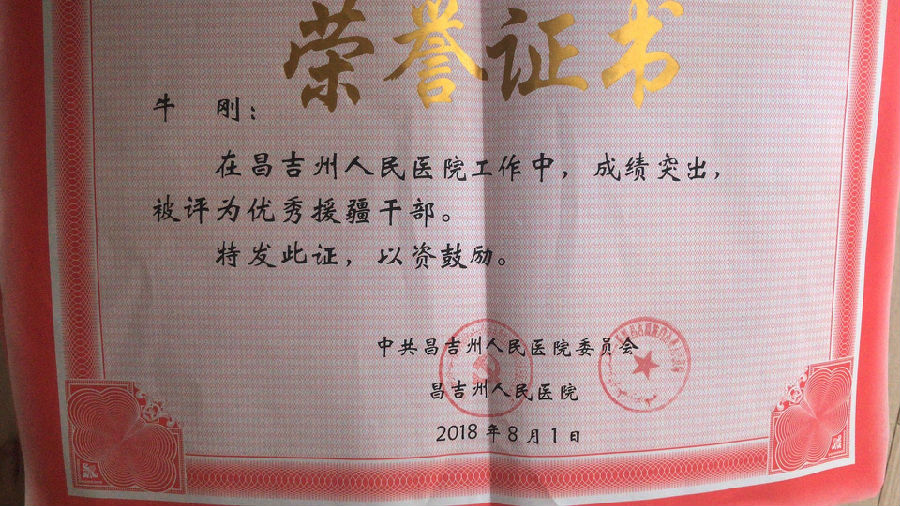 荣誉证书
牛 刚：
在昌吉州人民医院工作中，成绩突出，
被评为优秀援疆干部。
特发此证，以资鼓励。
中共昌吉州人民医院委员会
昌吉州人民医院
2018年8月1日